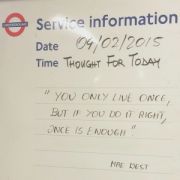 Service information
Date 09/02/2015
Time THOUGHT FOR TODAY
"YOU ONLY LIVE ONCE,
BUT IF YOU DO IT RIGHT,
ONCE IS ENOUGH"
MAE WEST